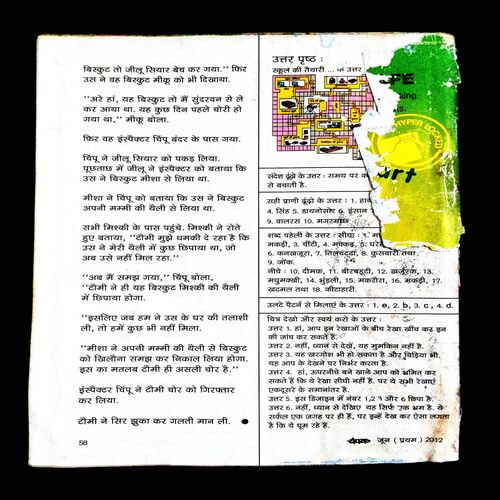 बिस्कुट तो जीलू सियार बेच कर गया.” फिर
उस ने वह बिस्कुट मीकू को भी दिखाया.
“अरे हां, यह बिस्कुट तो मैं सुंदरवन से ले
कर आया था. यह कुछ दिन पहले चोरी हो
गया था,” मीकू बोला.
फिर वह इंस्पैक्टर चिंपू बंदर के पास गया.
चिंपू ने जीलू सियार को पकड़ लिया.
पूछताछ में जीलू ने इंस्पैक्टर को बताया कि
उस ने बिस्कुट मीशा से लिया था.
मीशा ने चिंपू को बताया कि उस ने बिस्कुट
अपनी मम्मी की थैली से लिया था.
सभी मिश्की के पास पहुंचे. मिश्की ने रोते
हुए बताया, “टीमी मुझे धमकी दे रहा है कि
उस ने मेरी थैली में कुछ छिपाया था, जो
अब उसे नहीं मिल रहा.”
“अब मैं समझ गया,” चिंपू बोला,
“टीमी ने ही यह बिस्कुट मिश्की की थैली
में छिपाया होगा.
“इसलिए जब हम ने उस के घर की तलाशी
ली, तो हमें कुछ भी नहीं मिला.
“मीशा ने अपनी मम्मी की थैली से बिस्कुट
को खिलौना समझ कर निकाल लिया होगा.
इस का मतलब टीमी ही असली चोर है.”
इंस्पैक्टर चिंपू ने टीमी चोर को गिरफ्तार
कर लिया.
टीमी ने सिर झुका कर गलती मान ली.
58
उत्तर पृष्ठ :
स्कूल की तैयारी ... के उत्तर
xing.
HYPER LOCKED
Art
संदेश ढूंढ़ो के उत्तर : समय पर क
से बचाती है.
सही प्राणी ढूंढ़ो के उत्तर : 1. हा
4. सिंह 5. डायनोसोर 6. इंसान 7
9. वालरस 10. मगरमच्छ
शब्द पहेली के उत्तर : सीधा : 1. म
मकड़ी, 3. चींटी, 4. मक्कड़, 5.
6. कनखजूरा, 7. तिलचट्टा, 8.
9. जोंक.
नीचे : 10. दीमक, 11. बीरबहूटी, 12. खर्जूरक, 13.
मधुमक्खी, 14. भुंडली, 15. मकरोरा, 16. मकड़ी, 17.
खटमल तथा 18. कीटडारी.
उलटे पैटर्न से मिलाएं के उत्तर : 1. e, 2. b, 3. c, 4. d.
चित्र देखो और स्वयं करो के उत्तर :
उत्तर 1. हां, आप इन रेखाओं के बीच रेखा खींच कर इन
की जांच कर सकते हैं.
उत्तर 2. नहीं, ध्यान से देखें, यह मुमकिन नहीं है.
उत्तर 3. यह खरगोश भी हो सकता है और चिड़िया भी.
यह आप के देखने पर निर्भर करता है.
उत्तर 4. हां, ऊपरनीचे बने खाने आप को भ्रमित कर
सकते हैं कि ये रेखा सीधी नहीं है. पर ये सभी रेखाएं
एकदूसरे के समानांतर है.
उत्तर 5. इस डिजाइन में नंबर 1,2,3 और 6 छिपा है.
उत्तर 6. नहीं, ध्यान से देखिए यह सिर्फ एक भ्रम है. ये
सर्कल एक जगह पर ही हैं, पर इन्हें देख कर ऐसा लगता
है कि ये घूम रहे हैं.
जून ( प्रथम ) 2012